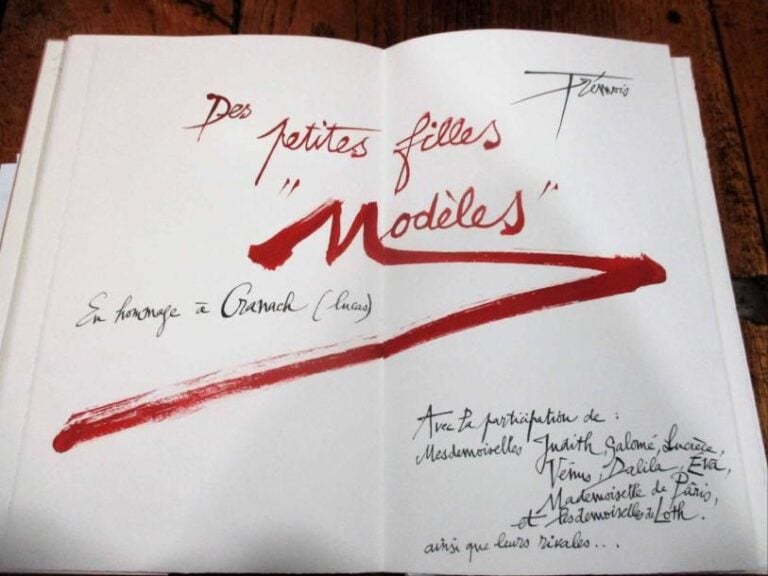 Trémois
Des
petites filles
"Modèles"
En hommage à Cranach (lucas)
Avec la participation de :
Mesdemoiselles Judith, Salomé, Lucrèce,
Vénus, Dalila, Éva,
Mademoiselle de Pâris,
et Mesdemoiselles de Loth.
ainsi que leurs rivales...